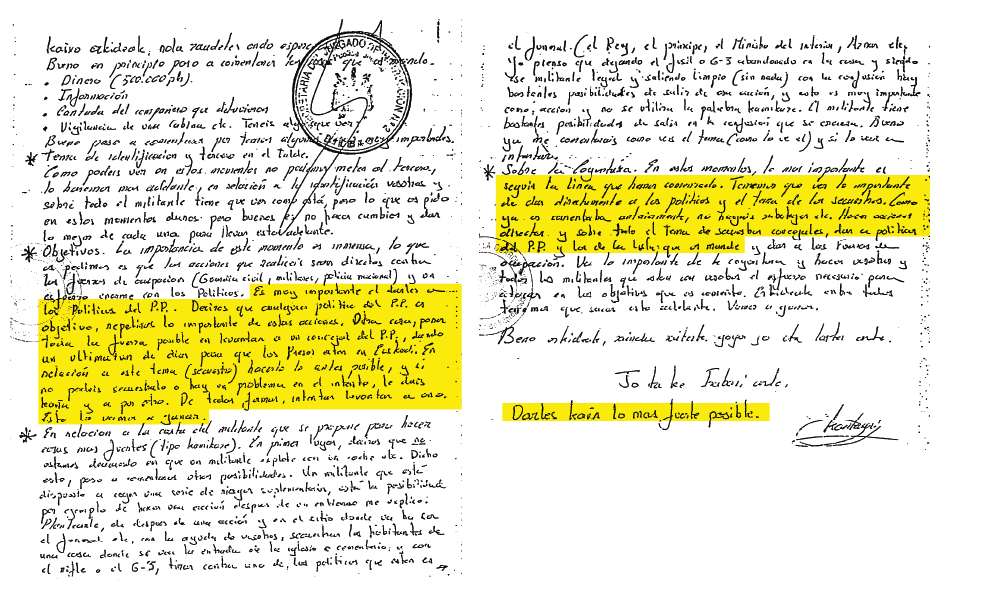 Kaixo askideok, nola zaudete
Bueno en principio paso a comentaros
• Dinero (500.000 pts).
• Información
• Cantada del compañero que detuvieron
• Vigilancia de una cabina etc. Teneis
Bueno paso a comentaros por temas algunas mas importantes.
* Tema de identificacion y tercero en el Talde.
Como podeis ver en estos momentos no podemos meter al tercero,
lo haremos mas adelante, en relación a la identificación vosotros y
sobre todo el militante tiene que ver como está, pero lo que os pido
en estos momentos duros pero buenos es no hacer cambios y dar
lo mejor de cada uno para llevar esto adelante.
* Objetivos. La importancia de este momento es inmensa, lo que
os pedimos es que las acciones que realiceis sean directas contra
las fuerzas de ocupación (Guardia civil, militares, policia nacional) y un
esfuerzo enorme con los Politicos. Es muy importante el darles a
los Politicos del P.P. Deciros que cualquier politico del P.P. es
objetivo, repetiros lo importante de estas acciones. Otra cosa, poner
toda la fuerza posible en levantar a un concejal del P.P. dando
un ultimatun de dias para que los Presos esten en Euskadi. En
relación a este tema (secuestro) hacerlo lo antes posible, y si
no podeis secuestrarlo o hay un problema en el intento, le dais
kaña y a por otro. De todas formas, intentar levantar a uno.
Esto lo vamos a ganar.
* En relacion a la carta del militante que se propone para hacer
cosas mas fuertes (tipo kamikaze). En primer lugar, deciros que no
estamos deacuerdo en que un militante explote con un coche etc. Dicho
esto, paso a comentaros otras posibilidades. Un militante que está
dispuesto a coger una serie de riesgos suplementarios, está la posibilidad
por ejemplo de hacer una acción despues de un entierro me explico:
Plantearte, de despues de una acción y en el sitio donde va ha ser
el funeral etc, con la ayuda de vosotros, secuestrar los habitantes de
una casa donde se vea la entrada de la iglesia o cementerio, y con
el rifle o el G-3, tirar contra uno de los politicos que esten en
el funeral. (el Rey, el principe, el Ministro del interior, Aznar etc.
Yo pienso que dejando el fusil o G-3 abandonado en la casa y siendo
ese militante legal y saliendo limpio (sin nada) con la confusión hay
bastantes posibilidades de salir de esa acción, y esto es muy importante
como acción y no se utiliza la palabra kamikaze. El militante tiene
bastantes posibilidades de salir en la confusión que se crearia. Bueno
ya me comentareis como veis el tema (como lo ve el) y si lo veis
intentarlo.
* Sobre la Coyuntura. En estos momentos, lo mas importante es
seguir la linea que haveis comenzado. Tenemos que ver lo importante
de dar directamente a los politicos y el tema de los secuestros. Como
ya os comentaba anteriormente, no hagais sabotajes etc. Hacer acciones
directas, y sobre todo el tema de secuestrar concejales, dar a politicos
del P.P. y los de la lista que os mande y dar a las Fuerzas de
ocupación. Ver lo importante de la coyuntura y hacer vosotros y
todos los militantes que estan con vosotros el esfuerzo necesario para
en los objetivos que os comento. Eskideak entre todos
tenemos que sacar esto adelante. Vamos a ganar.
Beno askideak, gogor jo eta laster arte.
Jo ta ke Irabazi arte.
Darles kaña lo mas fuerte posible.
Kantauri